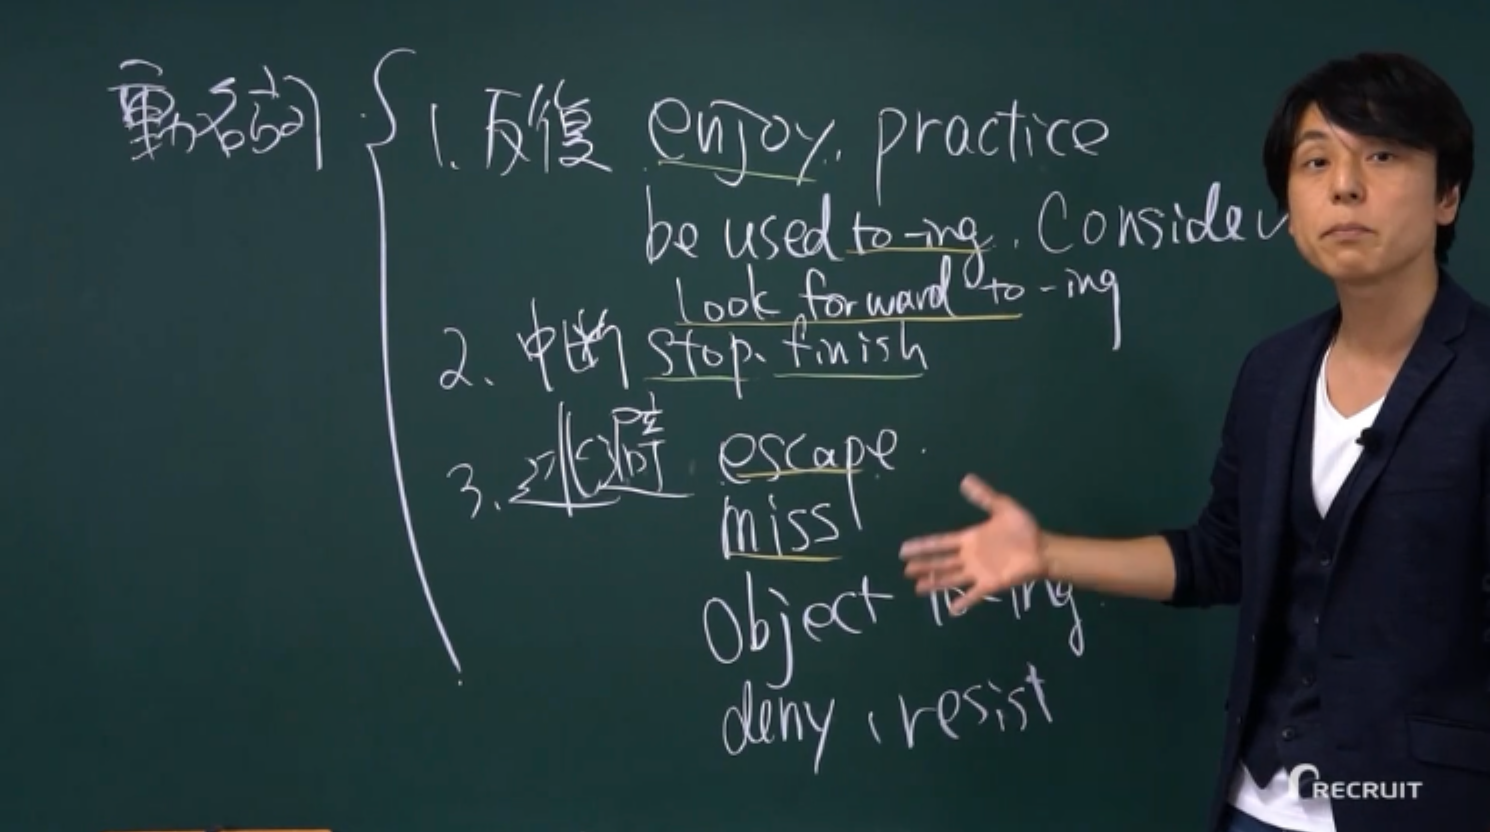 動名詞 1. 反復 enjoy. practice
be used to -ing. Consider
look forward to -ing
2. 中断 stop. finish
3. 逃避 escape.
miss
Object to -ing.
deny, resist
RECRUIT